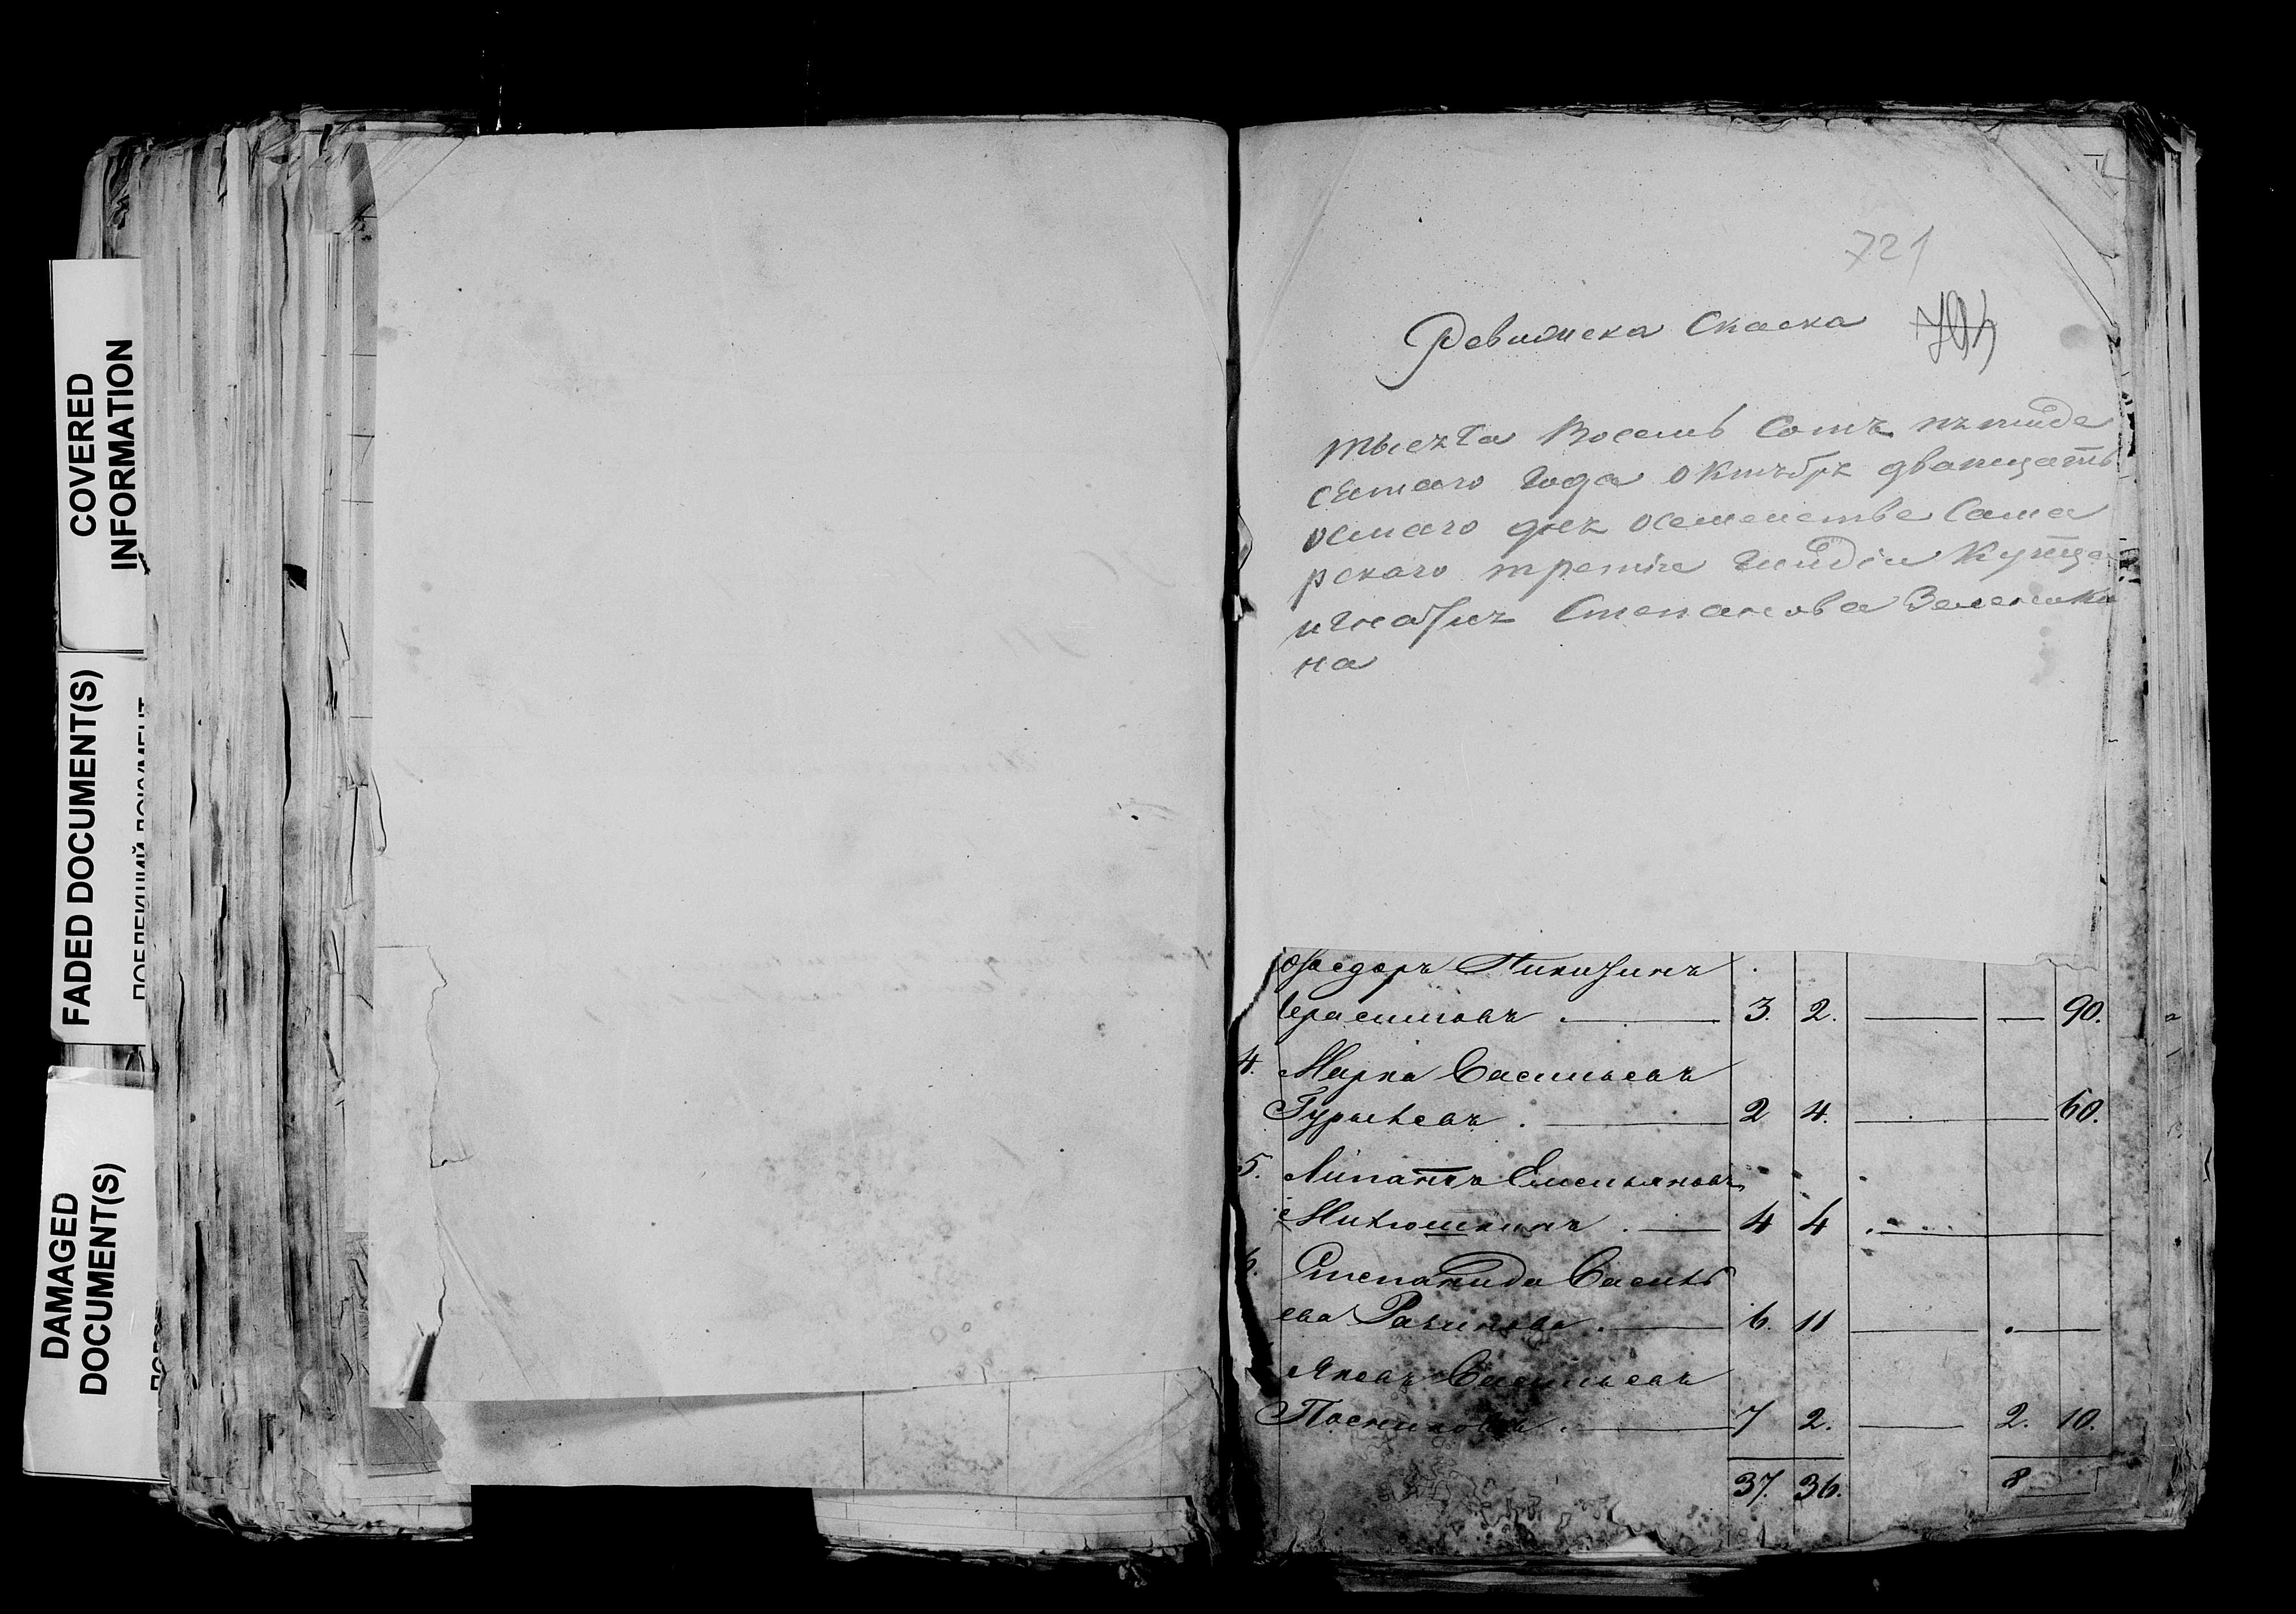 COVERED
INFORMATION
FADED DOCUMENT(S)
DAMAGED
DOCUMENT(S)
721
Ревижска Скаска
тысячa Восемь Сотъ пятиде
сятаго Года Октября дванцать
осмаго дня осемействе Сама
рскаго третiе Гилдiи Купца
игнатия Степанова Зеленки
на
Федоръ Никитинъ
Герасимовъ 3. 2. 90.
4. Марка Васильевъ
Гурьевъ 2 4. 60.
5. Липатъ Емельяновъ
Митюшкинъ 4 4
6. Степанида Василь
ева 6. 11
Яковъ Васильевъ
Посниковъ 7 2. 2. 10.
37. 36. 8